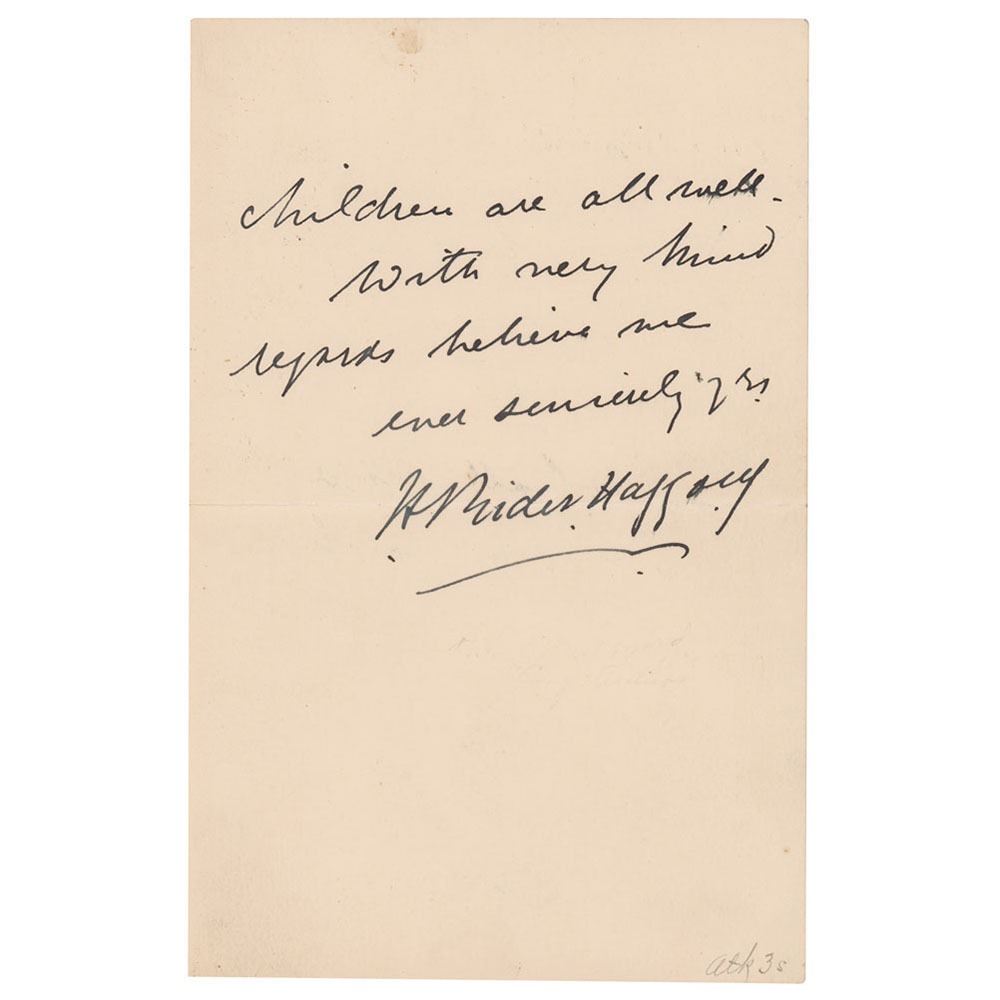 children are all well.
With very kind
regards believe me
ever sincerely yrs.
H Rider Haggard
atk 3s